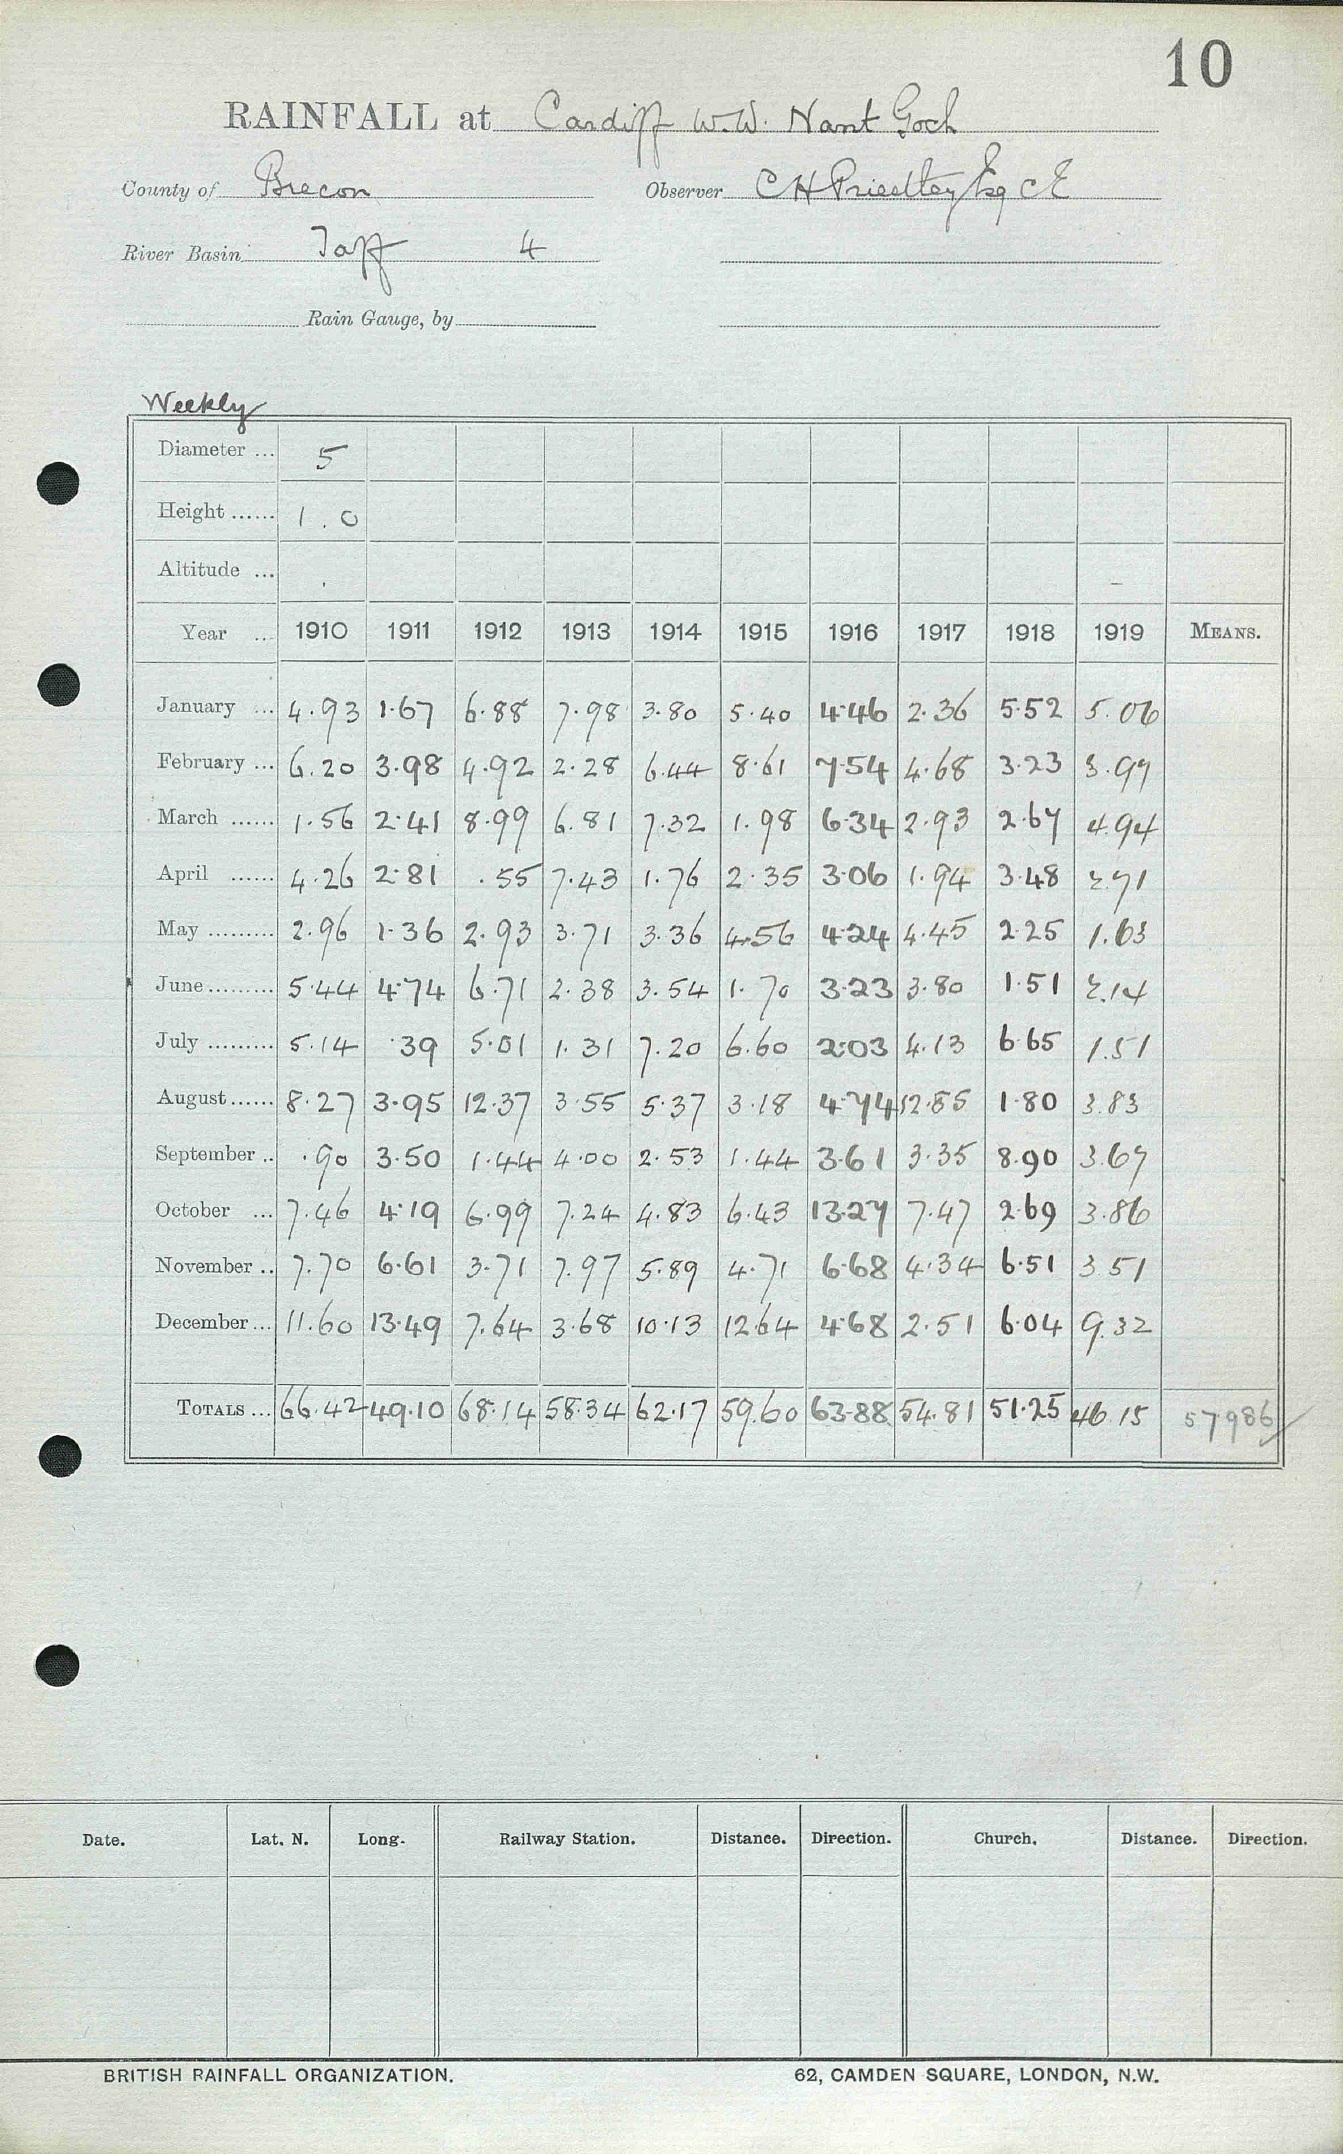 10
RAINFALL at Cardiff W.W. Nant Goch
County of Brecon Observer C H Priestley Esq C E
River Basin Taff 4
Rain Gauge, by
Weekly
Diameter ... 5
Height ...... 1.0
Altitude ...
Year ... 1910 1911 1912 1913 1914 1915 1916 1917 1918 1919 MEANS.
January ... 4.93 1.67 6.88 7.98 3.80 5.40 4.46 2.36 5.52 5.06
February ... 6.20 3.98 4.92 2.28 6.44 8.61 7.54 4.68 3.23 3.97
March ...... 1.56 2.41 8.99 6.81 7.32 1.98 6.34 2.93 2.67 4.94
April ...... 4.26 2.81 .55 7.43 1.76 2.35 3.06 1.94 3.48 2.71
May ......... 2.96 1.36 2.93 3.71 3.36 4.56 4.24 4.45 2.25 1.63
June ......... 5.44 4.74 6.71 2.38 3.54 1.70 3.23 3.80 1.51 2.14
July ......... 5.14 .39 5.01 1.31 7.20 6.60 2.03 4.13 6.65 1.51
August ...... 8.27 3.95 12.37 3.55 5.37 3.18 4.74 12.85 1.80 3.83
September .. .90 3.50 1.44 4.00 2.53 1.44 3.61 3.35 8.90 3.67
October ... 7.46 4.19 6.99 7.24 4.83 6.43 13.27 7.47 2.69 3.86
November .. 7.70 6.61 3.71 7.97 5.89 4.71 6.68 4.34 6.51 3.51
December ... 11.60 13.49 7.64 3.68 10.13 12.64 4.68 2.51 6.04 9.32
TOTALS ... 66.42 49.10 68.14 58.34 62.17 59.60 63.88 54.81 51.25 46.15 57986
Date. Lat. N. Long. Railway Station. Distance. Direction. Church. Distance. Direction.
BRITISH RAINFALL ORGANIZATION. 62, CAMDEN SQUARE, LONDON, N.W.